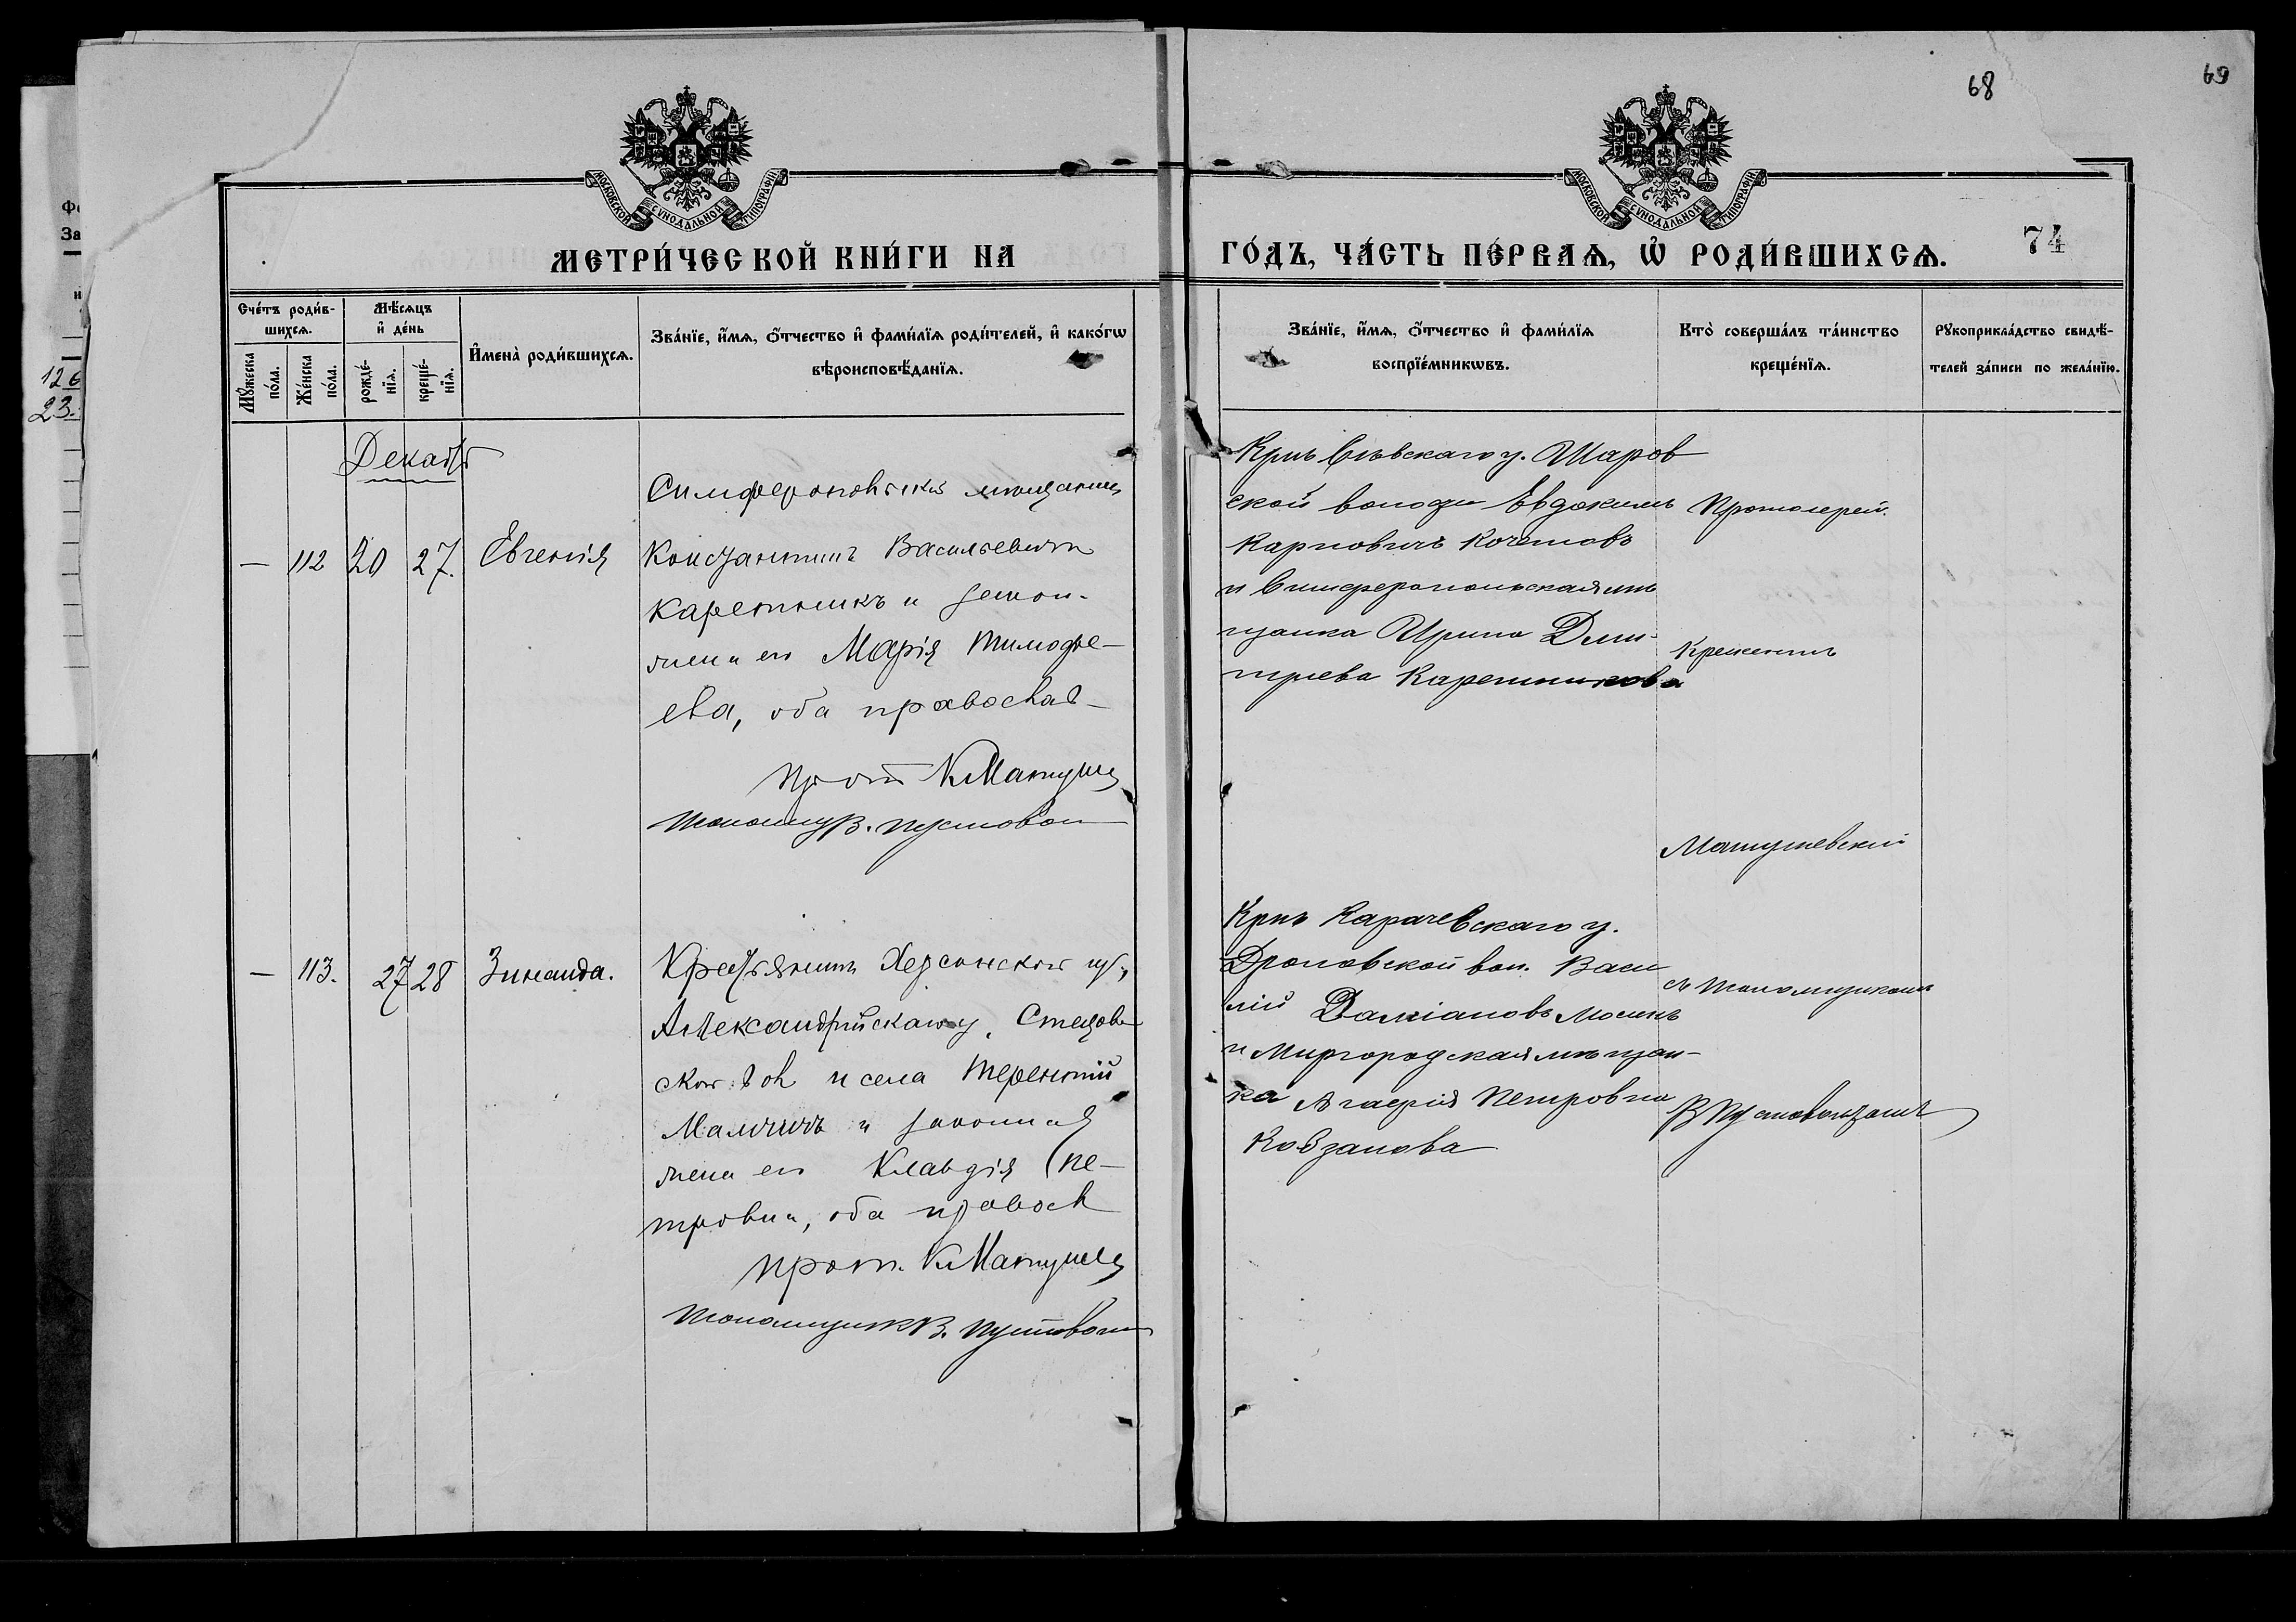 68
69
74
МОСКОВСКОЙ СѴНОДАЛЬНОЙ ТИПОГРАФІИ
МОСКОВСКОЙ СѴНОДАЛЬНОЙ ТИПОГРАФІИ
МЕТРИ́ЧЕСКОЙ КНИ́ГИ НА
ГО́ДЪ, ЧА́СТЬ ПЕ́РВАѦ, Ѡ҆ РОДИ́ВШИХСѦ.
Сче́тъ роди́в-
шихсѧ.
Мꙋ́жеска по́ла.
Же́нска по́ла.
Мѣ́сѧцъ
и҆ де́нь
рожде́-
нїѧ.
креще́-
нїѧ.
И҆мена̀ роди́вшихсѧ.
Зва́нїе, и҆́мѧ, ѻ҆́тчество и҆ фами́лїѧ роди́телей, и҆ како́гѡ
вѣроисповѣ́данїѧ.
Зва́нїе, и҆́мѧ, ѻ҆́тчество и҆ фами́лїѧ
воспрїе́мникѡвъ.
Кто̀ соверша́лъ та́инство
креще́нїѧ.
Рꙋкоприкла́дство свидѣ́-
телей за́писи по жела́нїю.
126
23.
Декабр
— 112 20 27. Евгенія
Симферопольскій мѣщанинъ
Константинъ Васильевичъ
Каретникъ и закон.
жена его Марія Тимофе-
ева, оба православ
Прот К Матуш
Псаломщ В. Пустовой
Крнъ Сѣвскаго у. Шаров
ской волости Евдокимъ
Карповичъ Кочетовъ
и Симферопольская мѣ
щанка Ирина Дми-
тріева Каретникова
Протоіерей
Клементъ
Матушевскій
— 113. 27 28 Зинаида.
Крестьянинъ Херсонской губ,
Александрійскаго у, Стецов
ской вол и села Терентій
Мамчичъ и законная
жена его Клавдія Пе-
тровна, оба правосл
прот. К Матушев
Псаломщикъ В. Пустовой
Крнъ Карачевскаго у.
Дроновской вол. Васи
лій Даміановъ
и Миргородская мѣщан-
ка Агафія Петровна
Ковзанова
съ Псаломщикомъ
В Пустовойтомъ